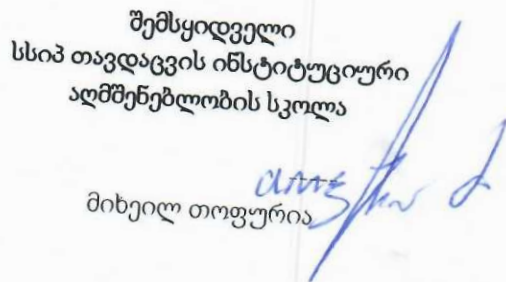 შემსყიდველი
სსიპ თავდაცვის ინსტიტუციური
აღმშენებლობის სკოლა
მიხეილ თოფურია